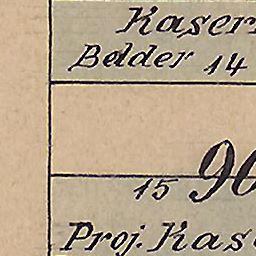 Kasern
Belder 14
15 90
Proj. Kas